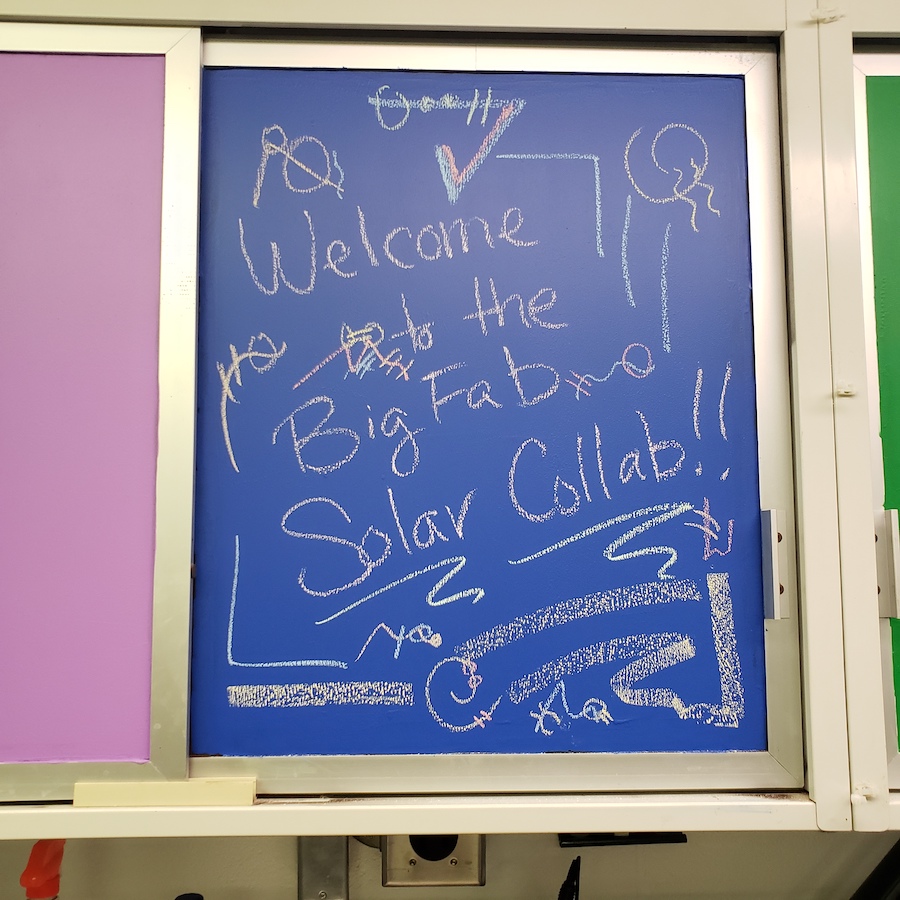 Welcome
to the
Big Fab
Solar Collab!!